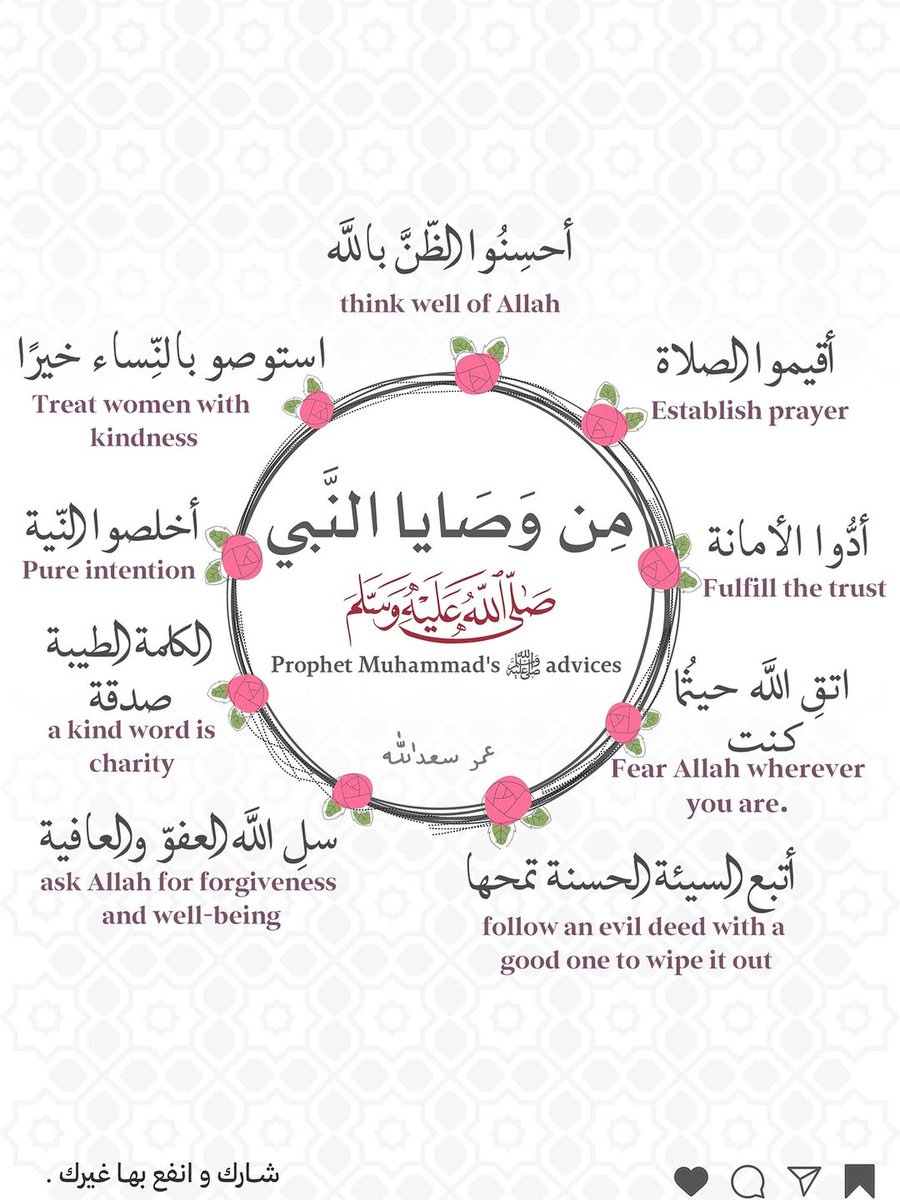 أحسِنُوا الظّنَّ باللَّه
think well of Allah
أقيموا الصلاة
Establish prayer
استوصو بالنِّساء خيرًا
Treat women with
kindness
مِن وَصَايا النَّبي
صَلَّى اللَّهُ عَلَيْهِ وَسَلَّمَ
Prophet Muhammad's ﷺ advices
عمر سعدالله
أدُّوا الأمانة
Fulfill the trust
أخلصو النّية
Pure intention
اتقِ اللَّه حيثُما
كنت
Fear Allah wherever
you are.
الكلمة الطيبة
صدقة
a kind word is
charity
أتبع السيئة الحسنة تمحها
follow an evil deed with a
good one to wipe it out
سلِ اللَّه العفوّ والعافية
ask Allah for forgiveness
and well-being
شارك و انفع بها غيرك .